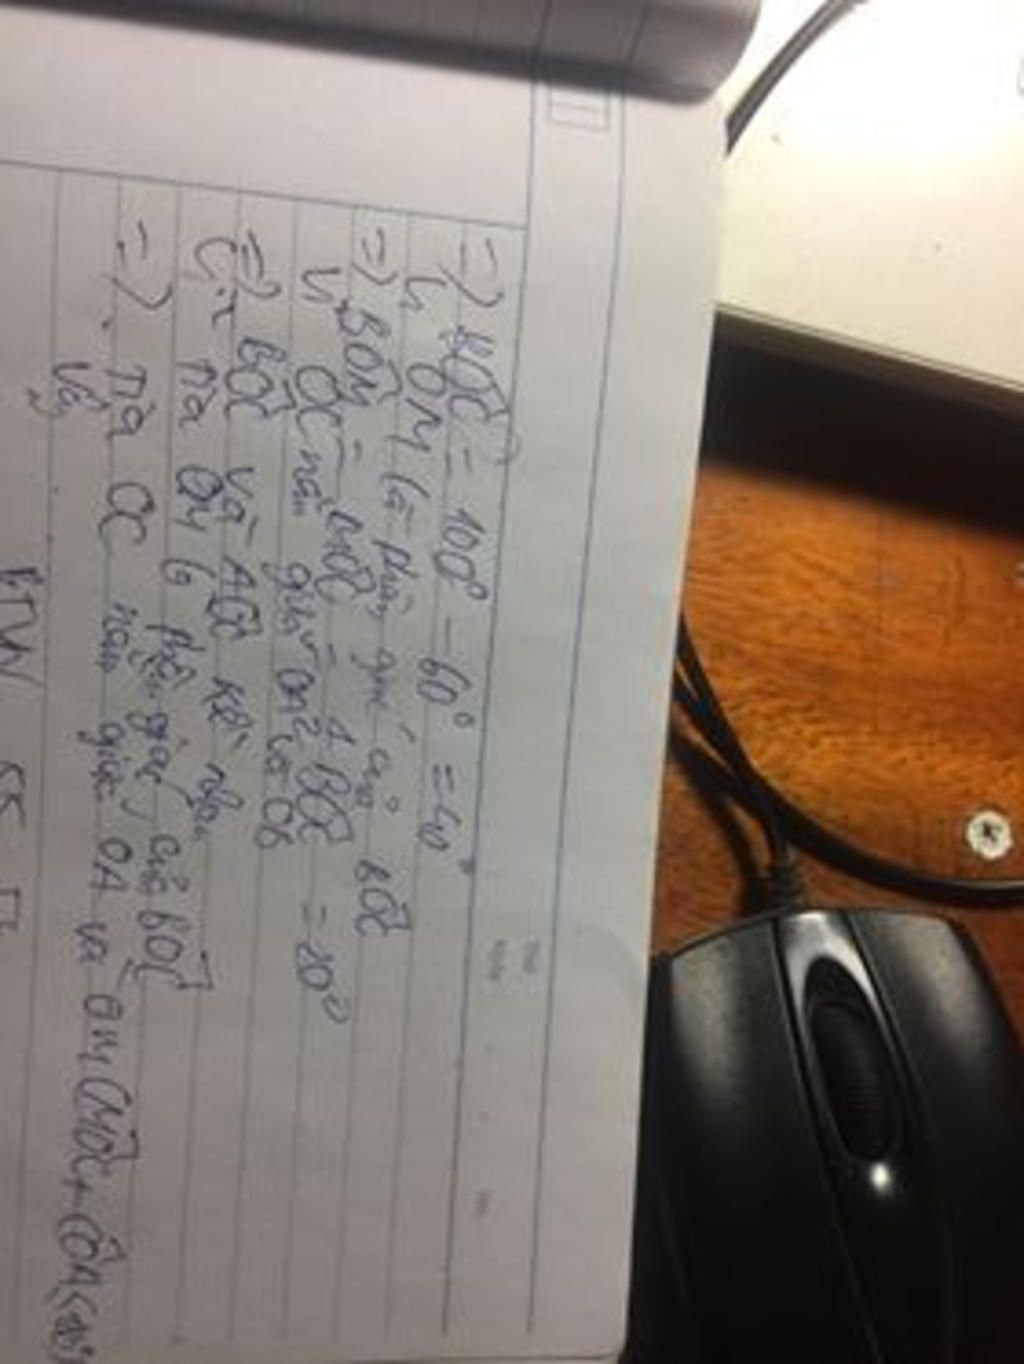 => BOC = 100° - 60° = 40°
Vì OM là phân giác của BOC
=> BOM = MOC = 1 BOC = 20°
Vì OC nằm giữa OA và OB
=> BOC và AOC kề nhau
Tia OM là phân giác của BOC
=> Tia OC nằm giữa OA và OM (MOC + COA
Vậy
BTVN